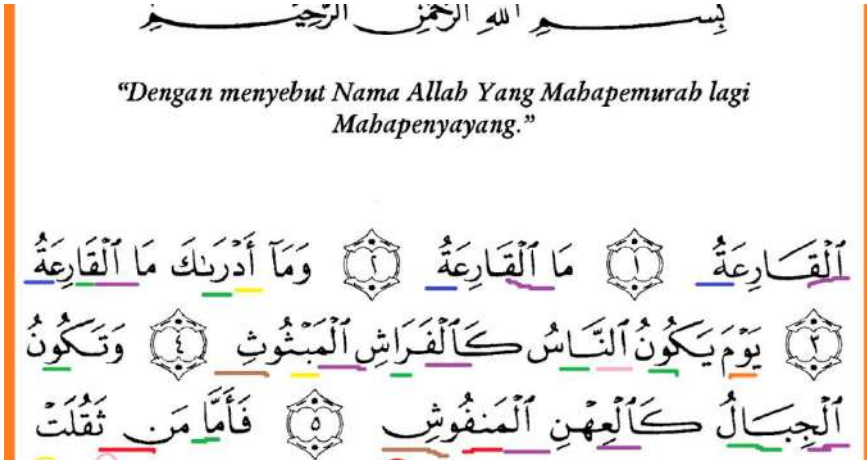 بِسْمِ اللهِ الرَّحْمٰنِ الرَّحِيْمِ
“Dengan menyebut Nama Allah Yang Mahapemurah lagi
Mahapenyayang.”
ٱلْقَارِعَةُ ١ مَا ٱلْقَارِعَةُ ٢ وَمَآ أَدْرَىٰكَ مَا ٱلْقَارِعَةُ
٣ يَوْمَ يَكُونُ ٱلنَّاسُ كَٱلْفَرَاشِ ٱلْمَبْثُوثِ ٤ وَتَكُونُ
ٱلْجِبَالُ كَٱلْعِهْنِ ٱلْمَنفُوشِ ٥ فَأَمَّا مَن ثَقُلَتْ